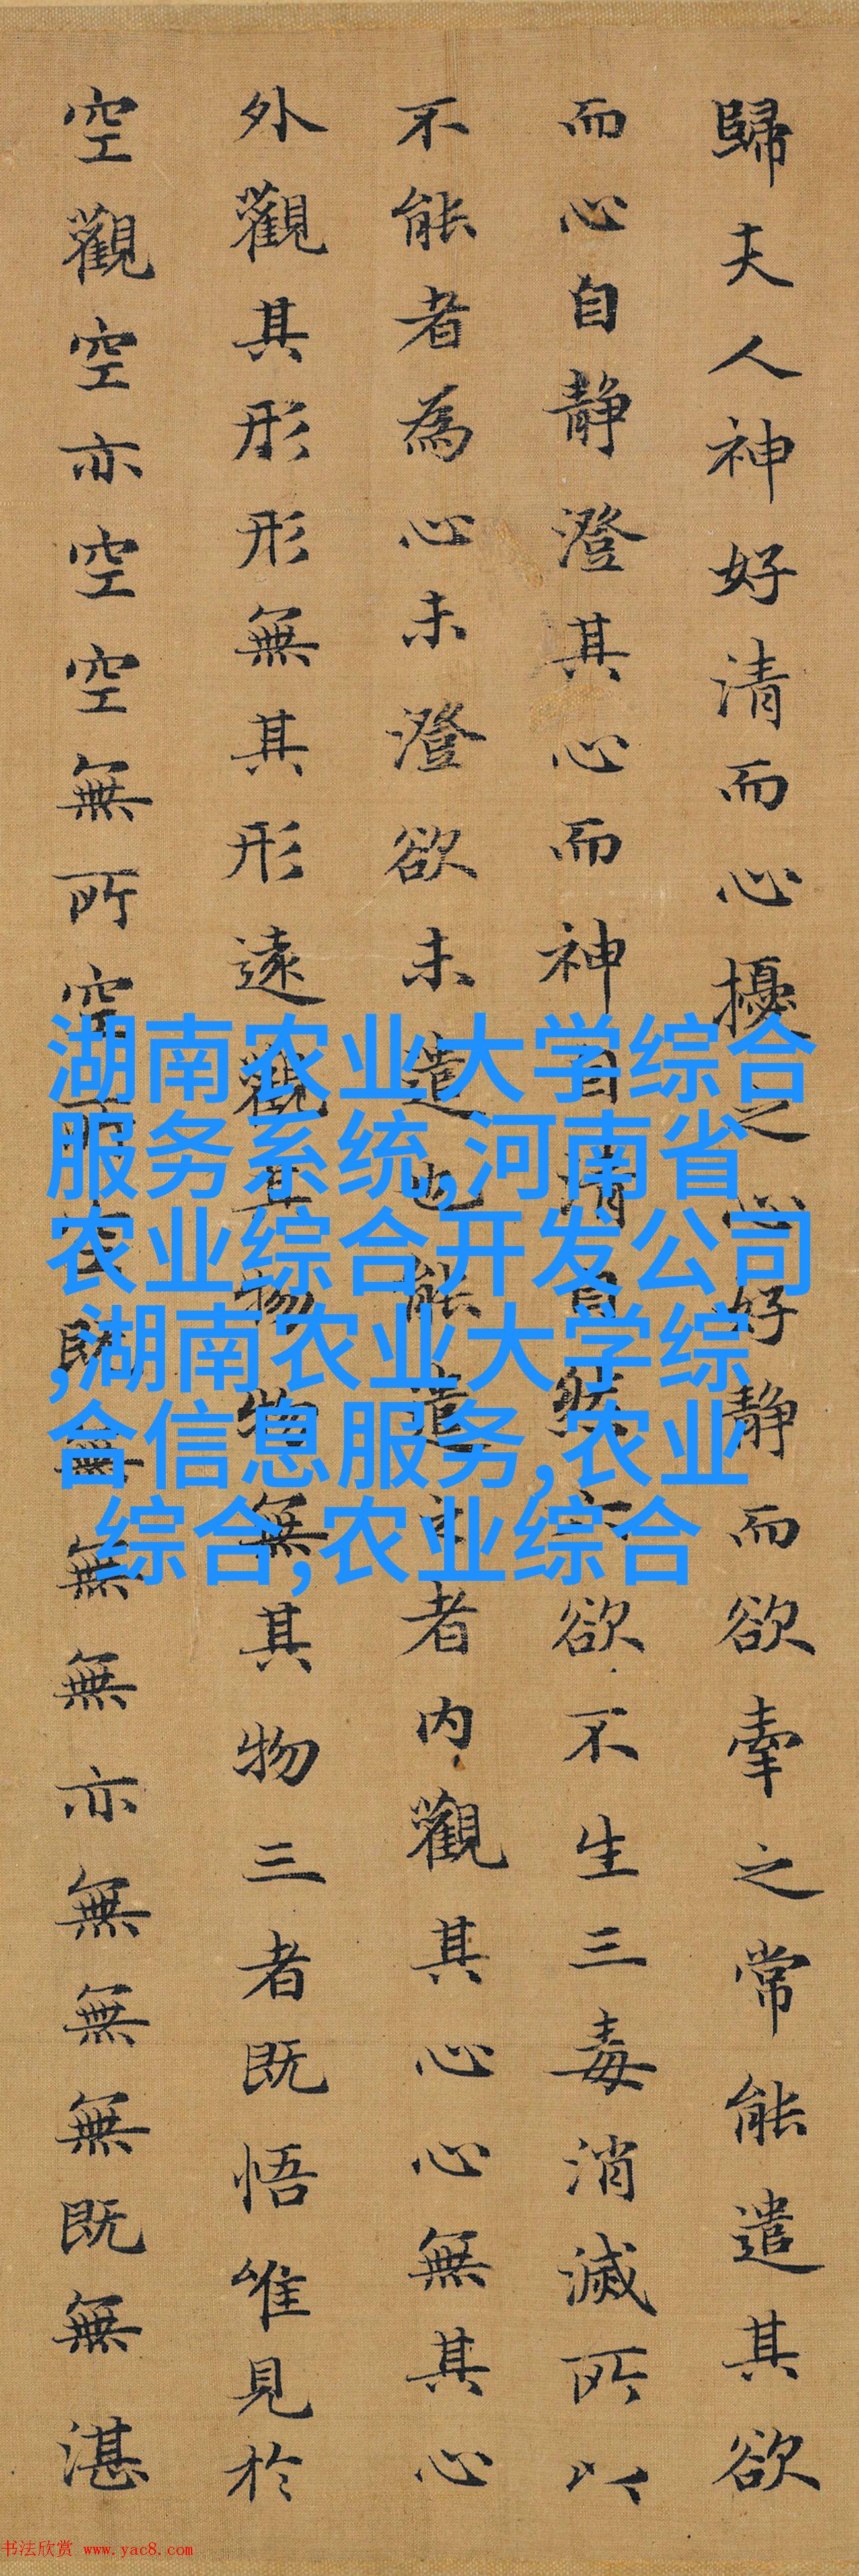 歸夫人神好清而心擾之心好静而欲牽之常能遣其欲
而心自静澄其心而神自清自然六欲不生三毒消滅所以
不能者為心未澄欲未遣也能遣之者内觀其心心無其心
外觀其形形無其形遠觀其物物無其物三者既悟唯見於
空觀空亦空空無所空所空既無無無亦無無無既無湛
湖南农业大学综合
服务系统,河南省
农业综合开发公司
,湖南农业大学综
合信息服务,农业
综合,农业综合
书法欣赏 www.yac8.com